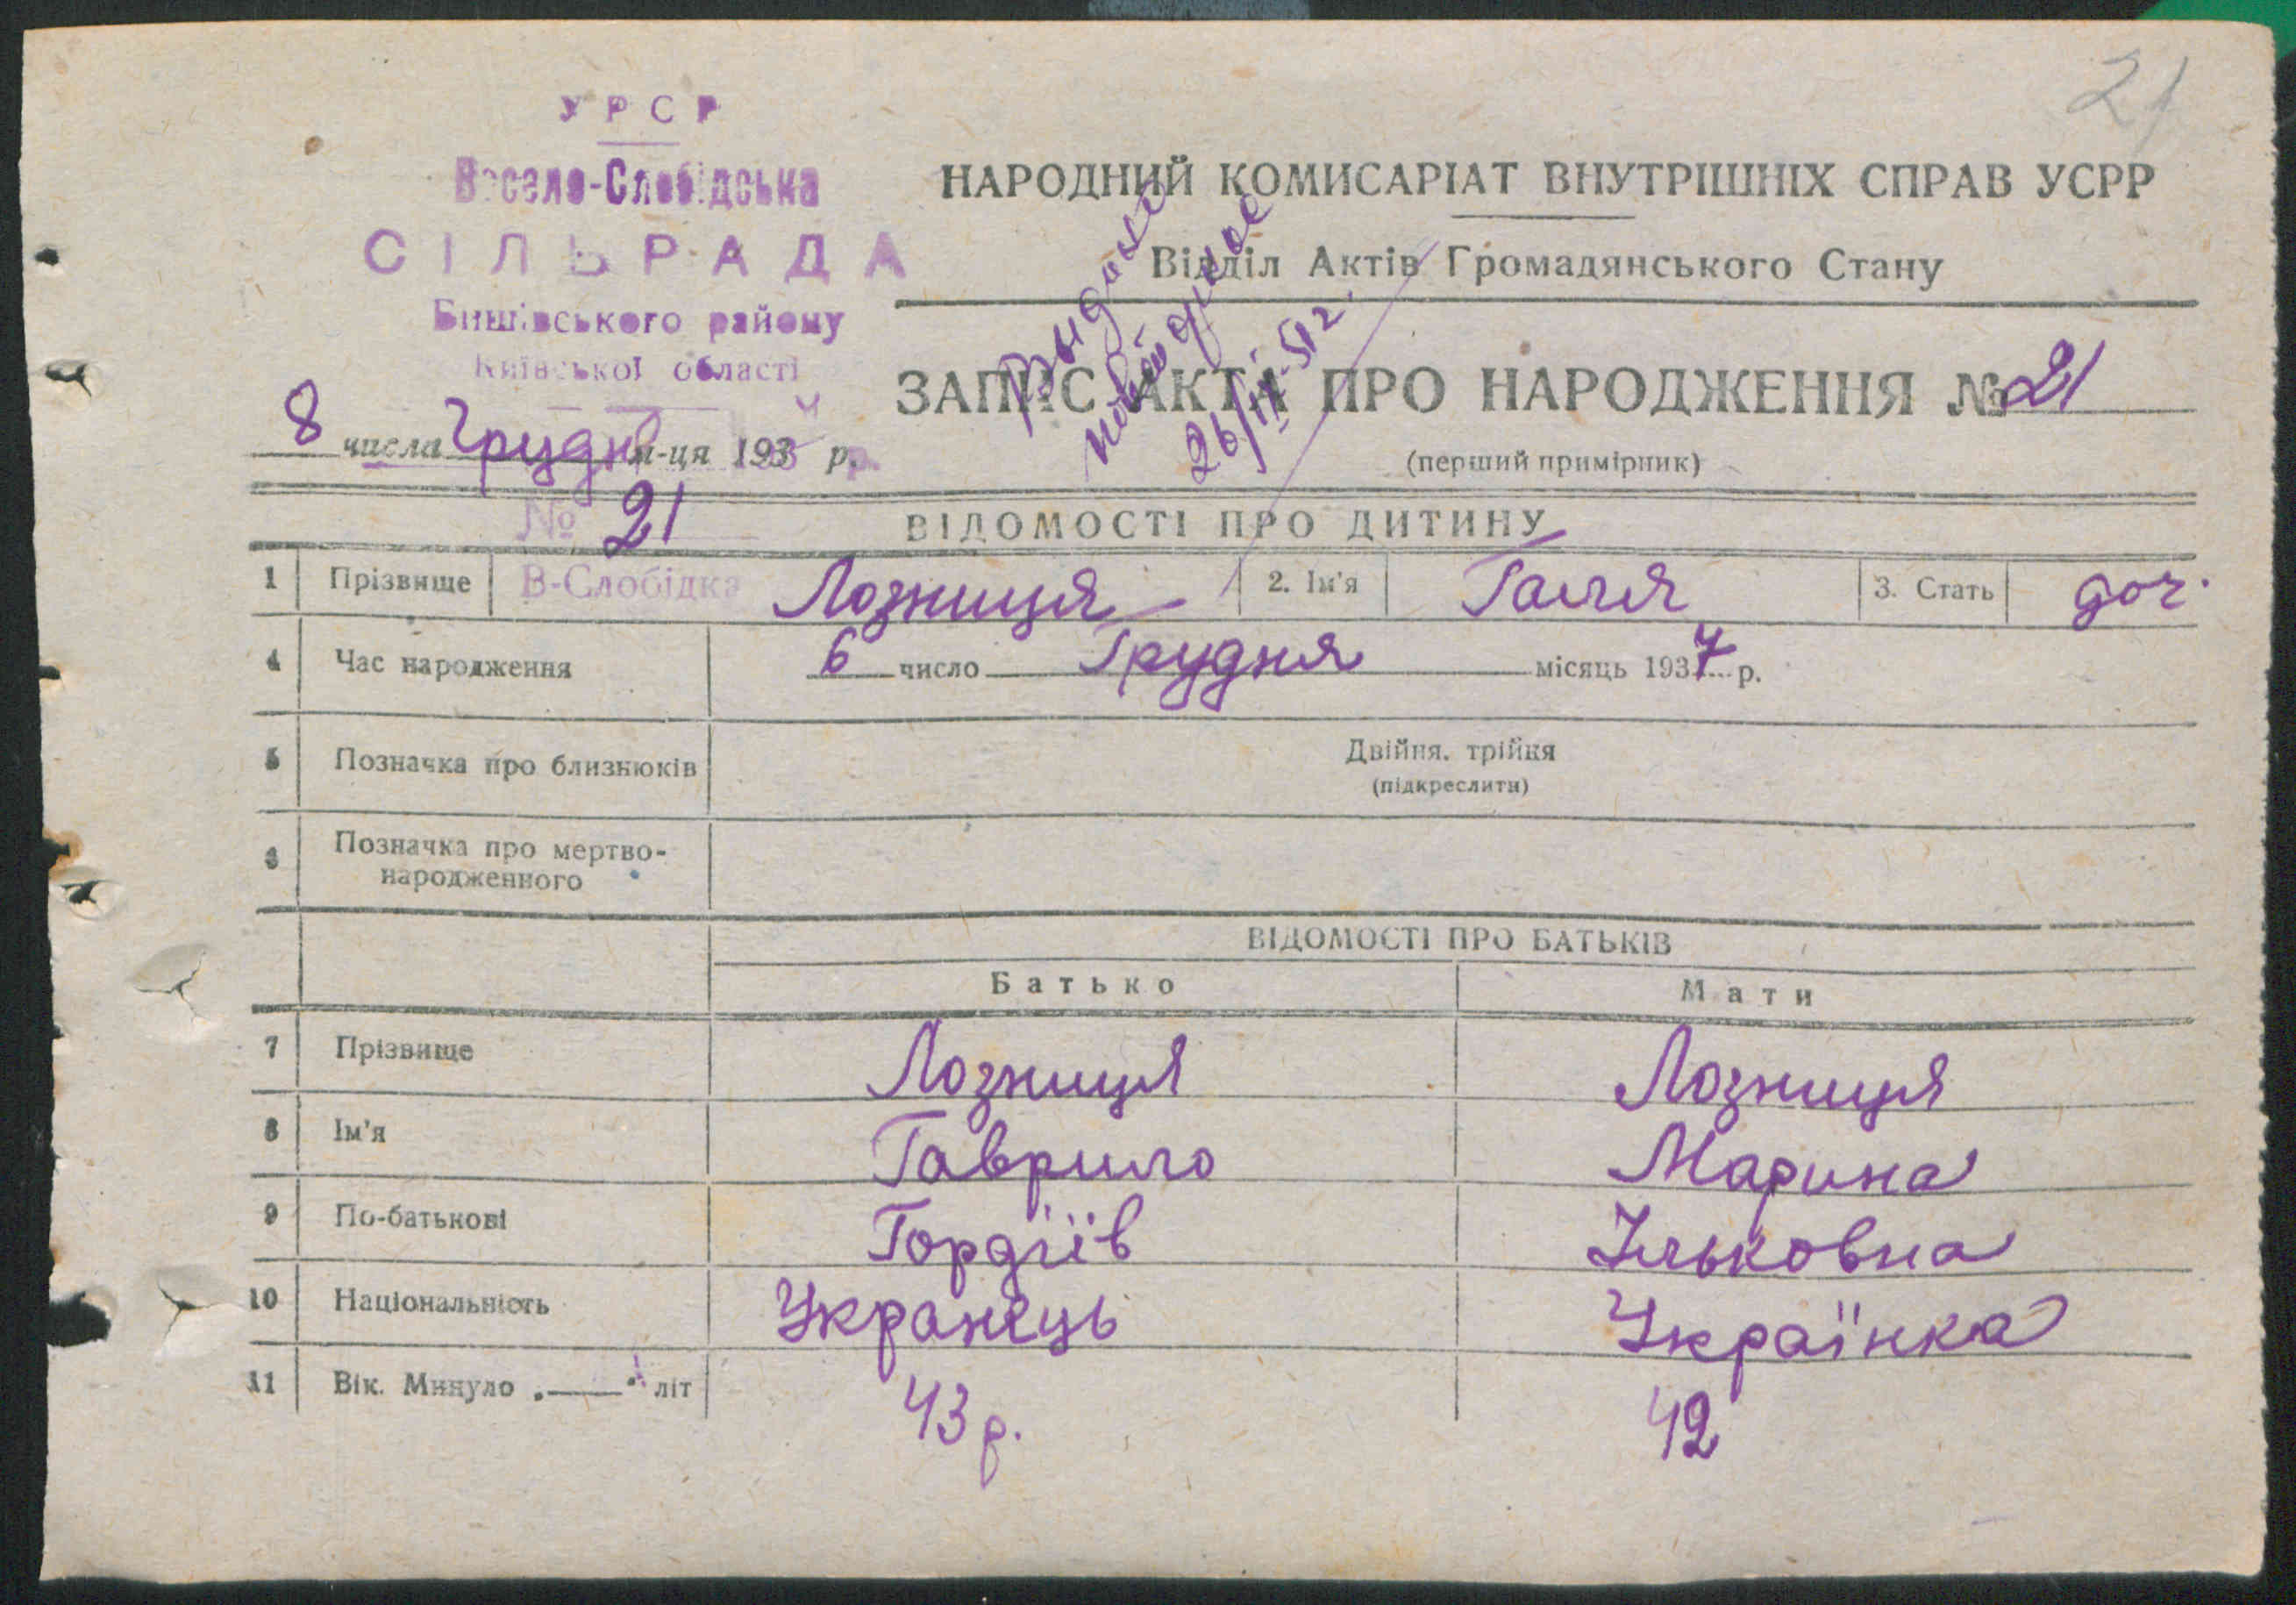 21
УРСР
Весело-Слобідська
СІЛЬРАДА
Бишівського району
Київської області
8 числа Грудня м-ця 193 р.
№ 21
В-Слобідка
НАРОДНИЙ КОМИСАРІАТ ВНУТРІШНІХ СПРАВ УСРР
Відділ Актів Громадянського Стану
Выдано
26/IX-51 г.
ЗАПИС АКТА ПРО НАРОДЖЕННЯ № 21
(перший примірник)
ВІДОМОСТІ ПРО ДИТИНУ
1 Прізвище Лозниця 2. Ім'я Галя 3. Стать доч.
4 Час народження 6 число Грудня місяць 1937 р.
5 Позначка про близнюків Двійня. трійня
(підкреслити)
6 Позначка про мертво-
народженного
ВІДОМОСТІ ПРО БАТЬКІВ
Батько Мати
7 Прізвище Лозниця Лозниця
8 Ім'я Гаврило Марина
9 По-батькові Гордіїв Ільковна
10 Національність Укранець Українка
11 Вік. Минуло „——“ літ 43 р. 42